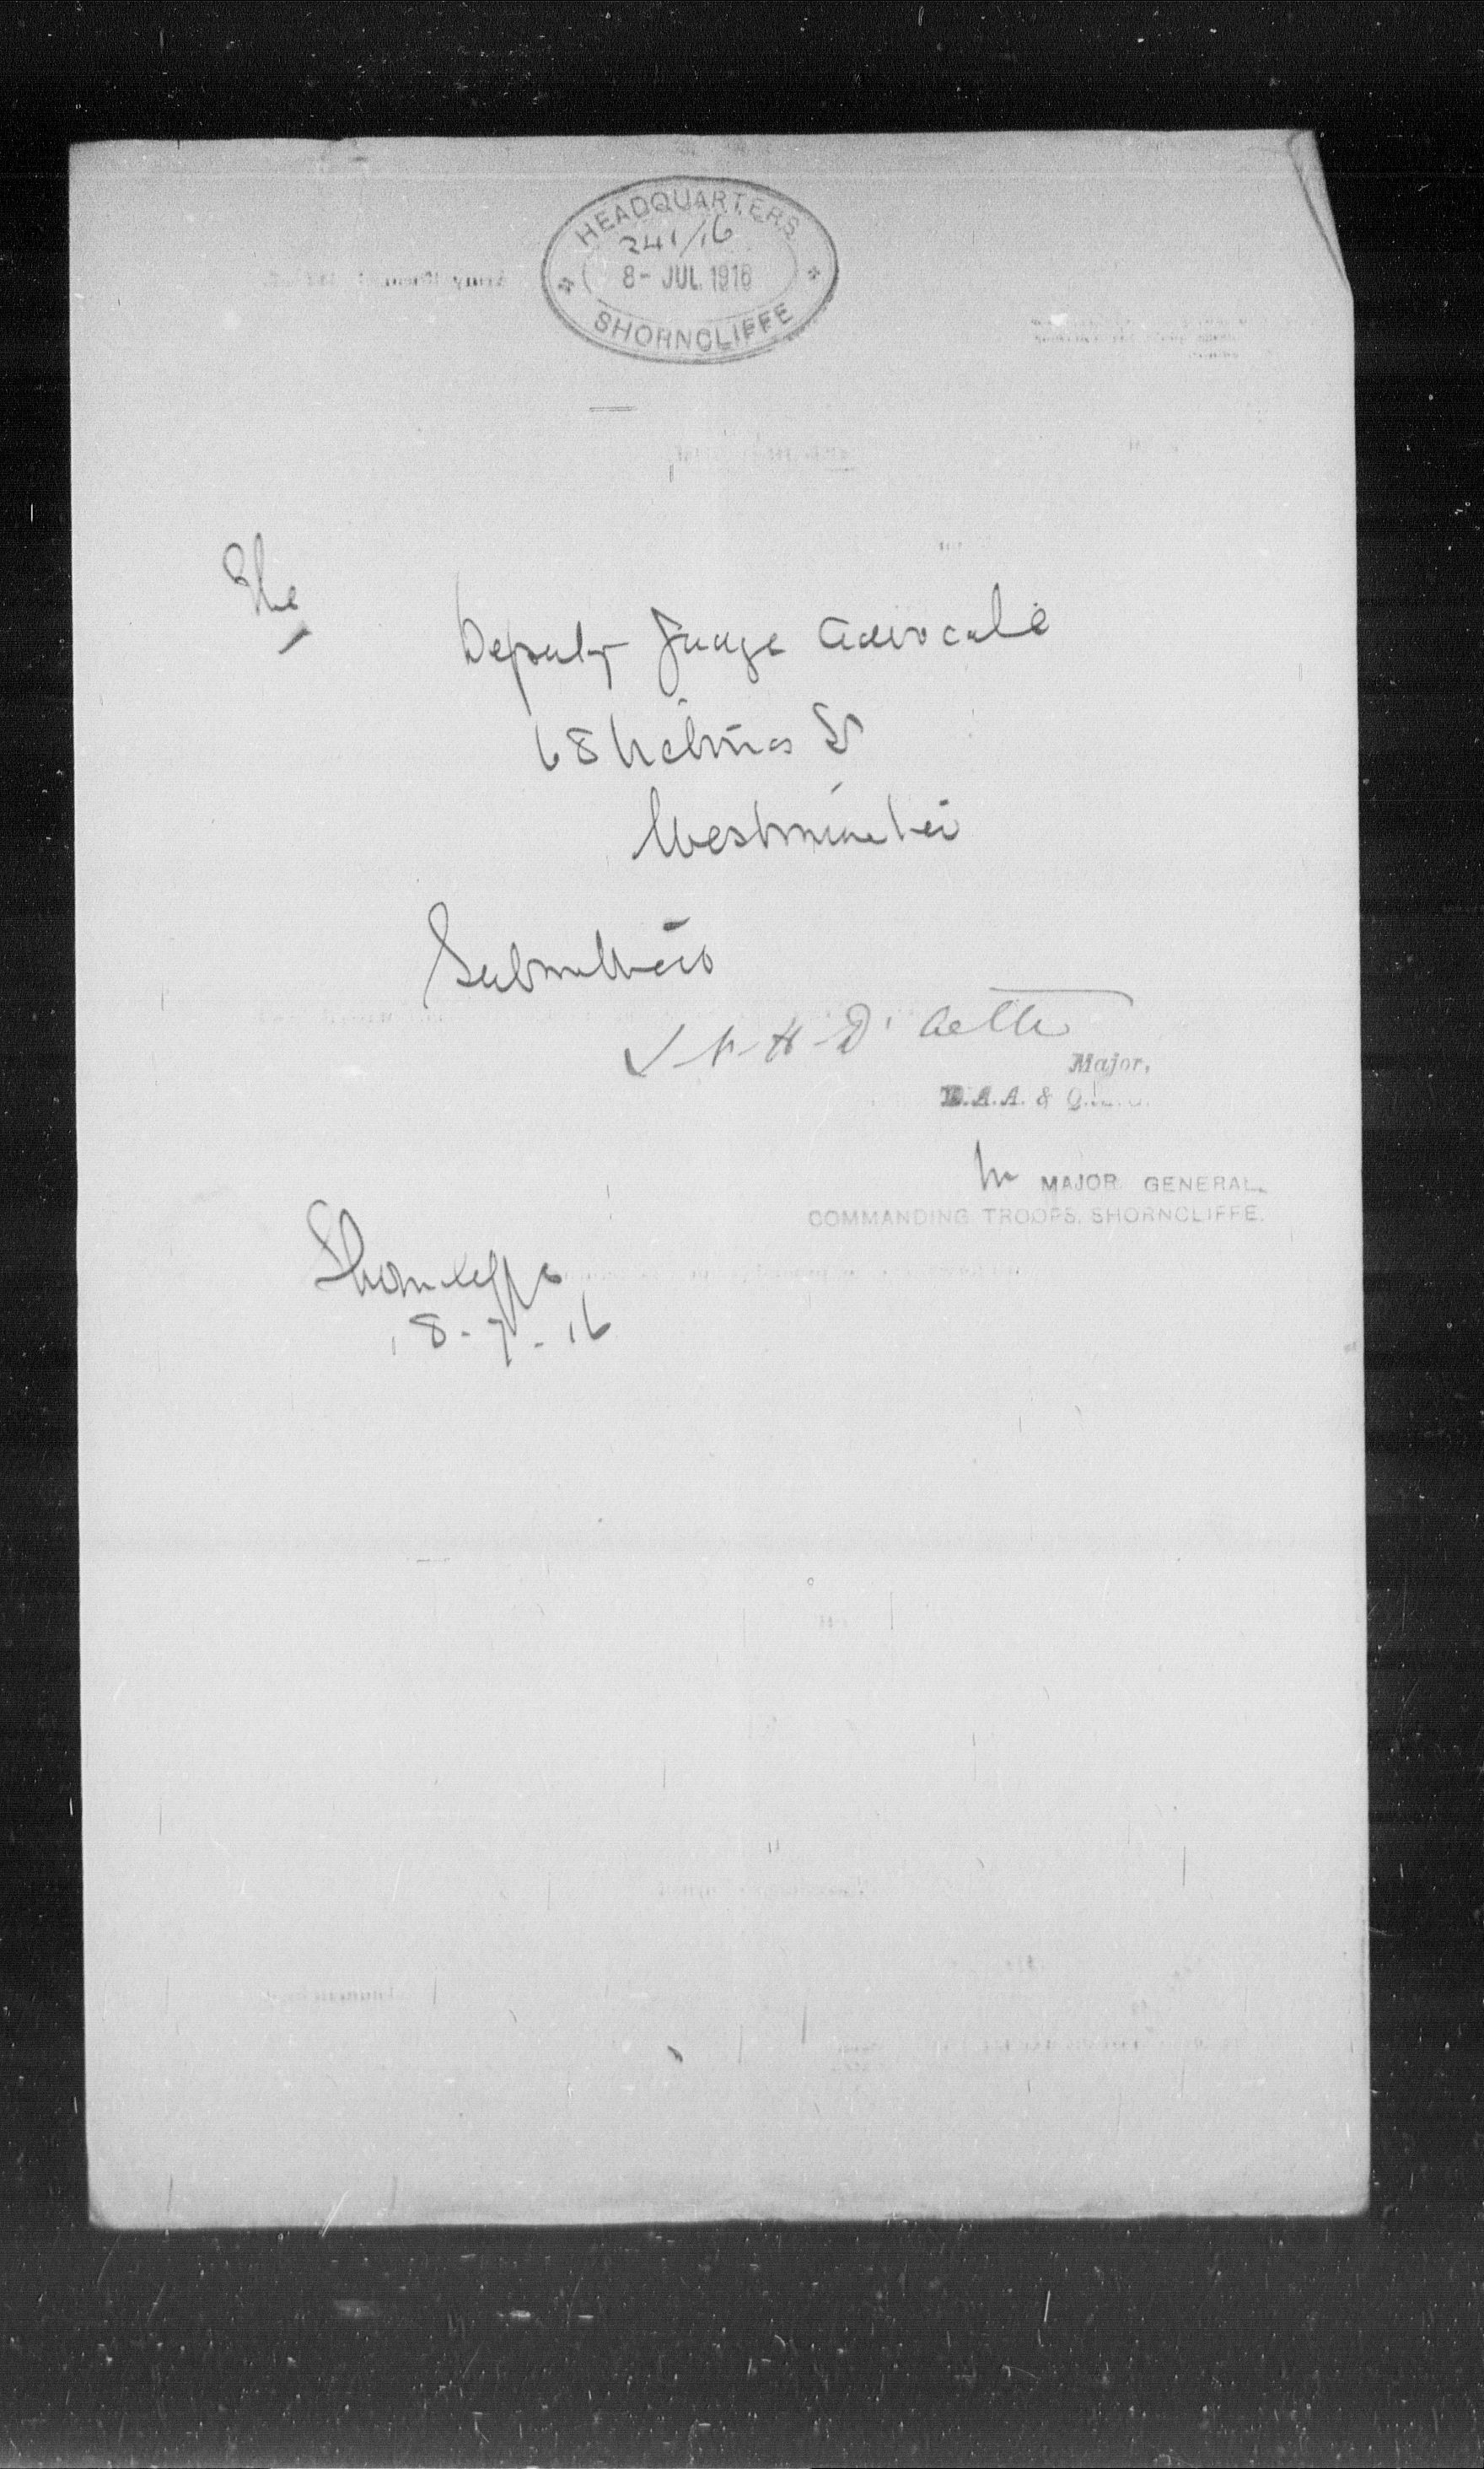 HEADQUARTERS
241/16
8- JUL 1916
SHORNCLIFFE
The
Deputy Judge Advocate
68 Victoria St
Westminster
Submitted
Major,
D.A.A. & Q.
MAJOR GENERAL,
COMMANDING TROOPS, SHORNCLIFFE.
Shorncliffe
8-7-16